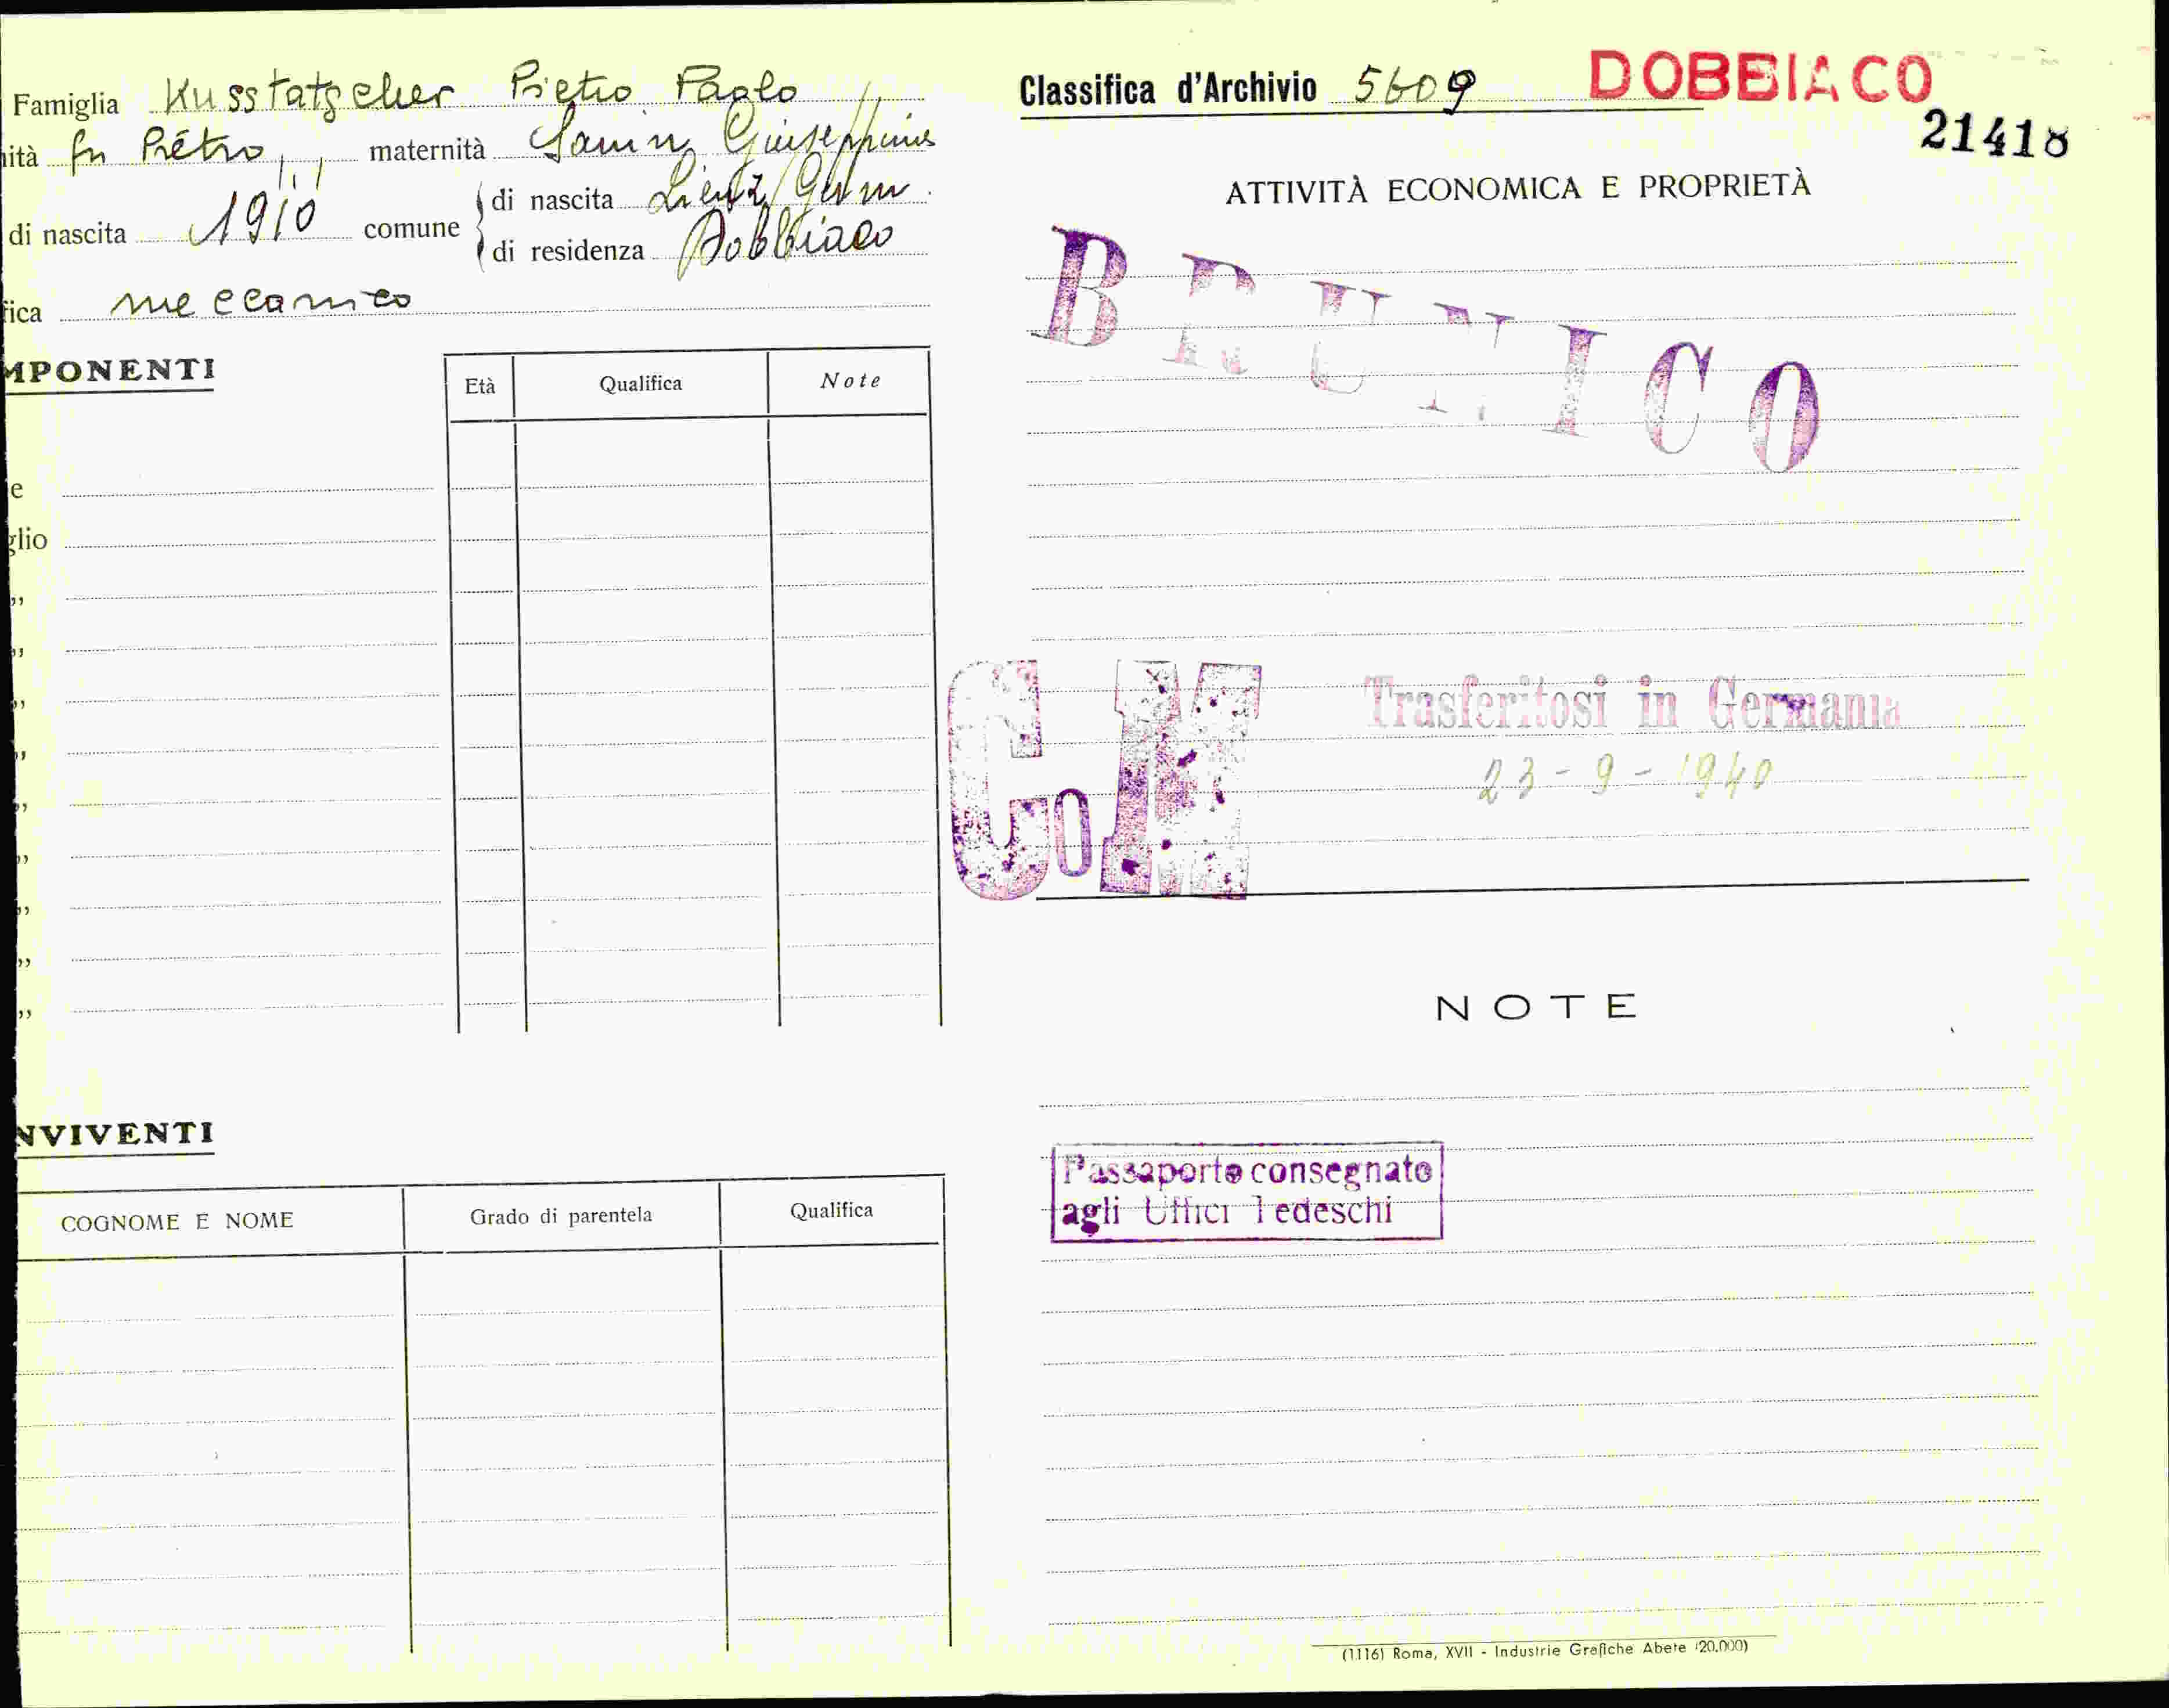 Famiglia Kusstatscher Pietro Paolo
ità fu Pietro maternità Sanin Giuseppina
di nascita 1910 comune di nascita Lienz/Germ.
di residenza Dobbiaco
ica meccanico
MPONENTI
Età Qualifica Note
e
glio
,,
,,
,,
,,
,,
,,
,,
,,
,,
NVIVENTI
COGNOME E NOME Grado di parentela Qualifica
Classifica d'Archivio 5609 DOBBIACO
21418
ATTIVITÀ ECONOMICA E PROPRIETÀ
BRUNICO
Trasferitosi in Germania
23-9-1940
NOTE
Passaporto consegnato
agli Uffici Tedeschi
(1116) Roma, XVII - Industrie Grafiche Abete (20.000)